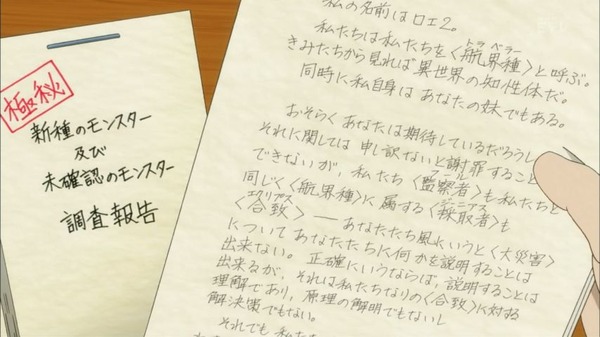 極秘
新種のモンスター
及び
未確認のモンスター
調査報告
私の名前はロエ2。
トラベラー
私たちは私たちを〈航界種〉と呼ぶ。
きみたちから見れば異世界の知性体だ。
同時に私自身は あなたの妹でもある。
おそらく あなたは期待しているだろうし
それに関しては 申し訳ないと謝罪すること
できないが、私たち〈監察者〉も私たちと
ジーニアス
同じく〈航界種〉に属する〈採取者〉も
エクリプス
〈合致〉── あなたたち風にいうと〈大災害〉
について あなたたちに何かを説明することは
出来ない。正確にいうならば、説明することは
出来るが、それは私たちなりの〈合致〉に対する
理解であり、原理の解明でもないし
解決策でもない。
それでも 私たち